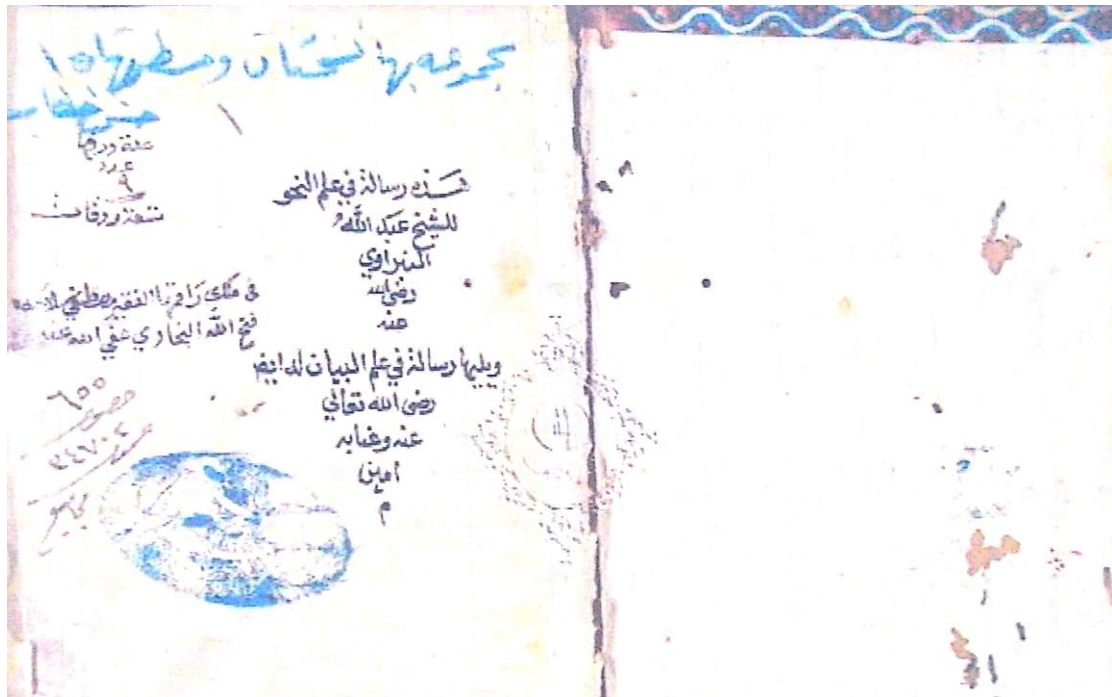 مجموعه بها نسختان ومسطرتها ١٥
١
عدة ورقها
عدد
٩
تسعة ورقات
هذه رسالة في علم النحو
للشيخ عبد الله
النبراوي
رضي الله
عنه
في ملك راقمه الفقير مصطفى
فتح الله البخاري عفي الله عنه
ويليها رسالة في علم البيان له ايضا
رضى الله تعالى
عنه وعنا به
امين
م
٦٥٥
خصوصية
٢٤٧٠٤
عمومية